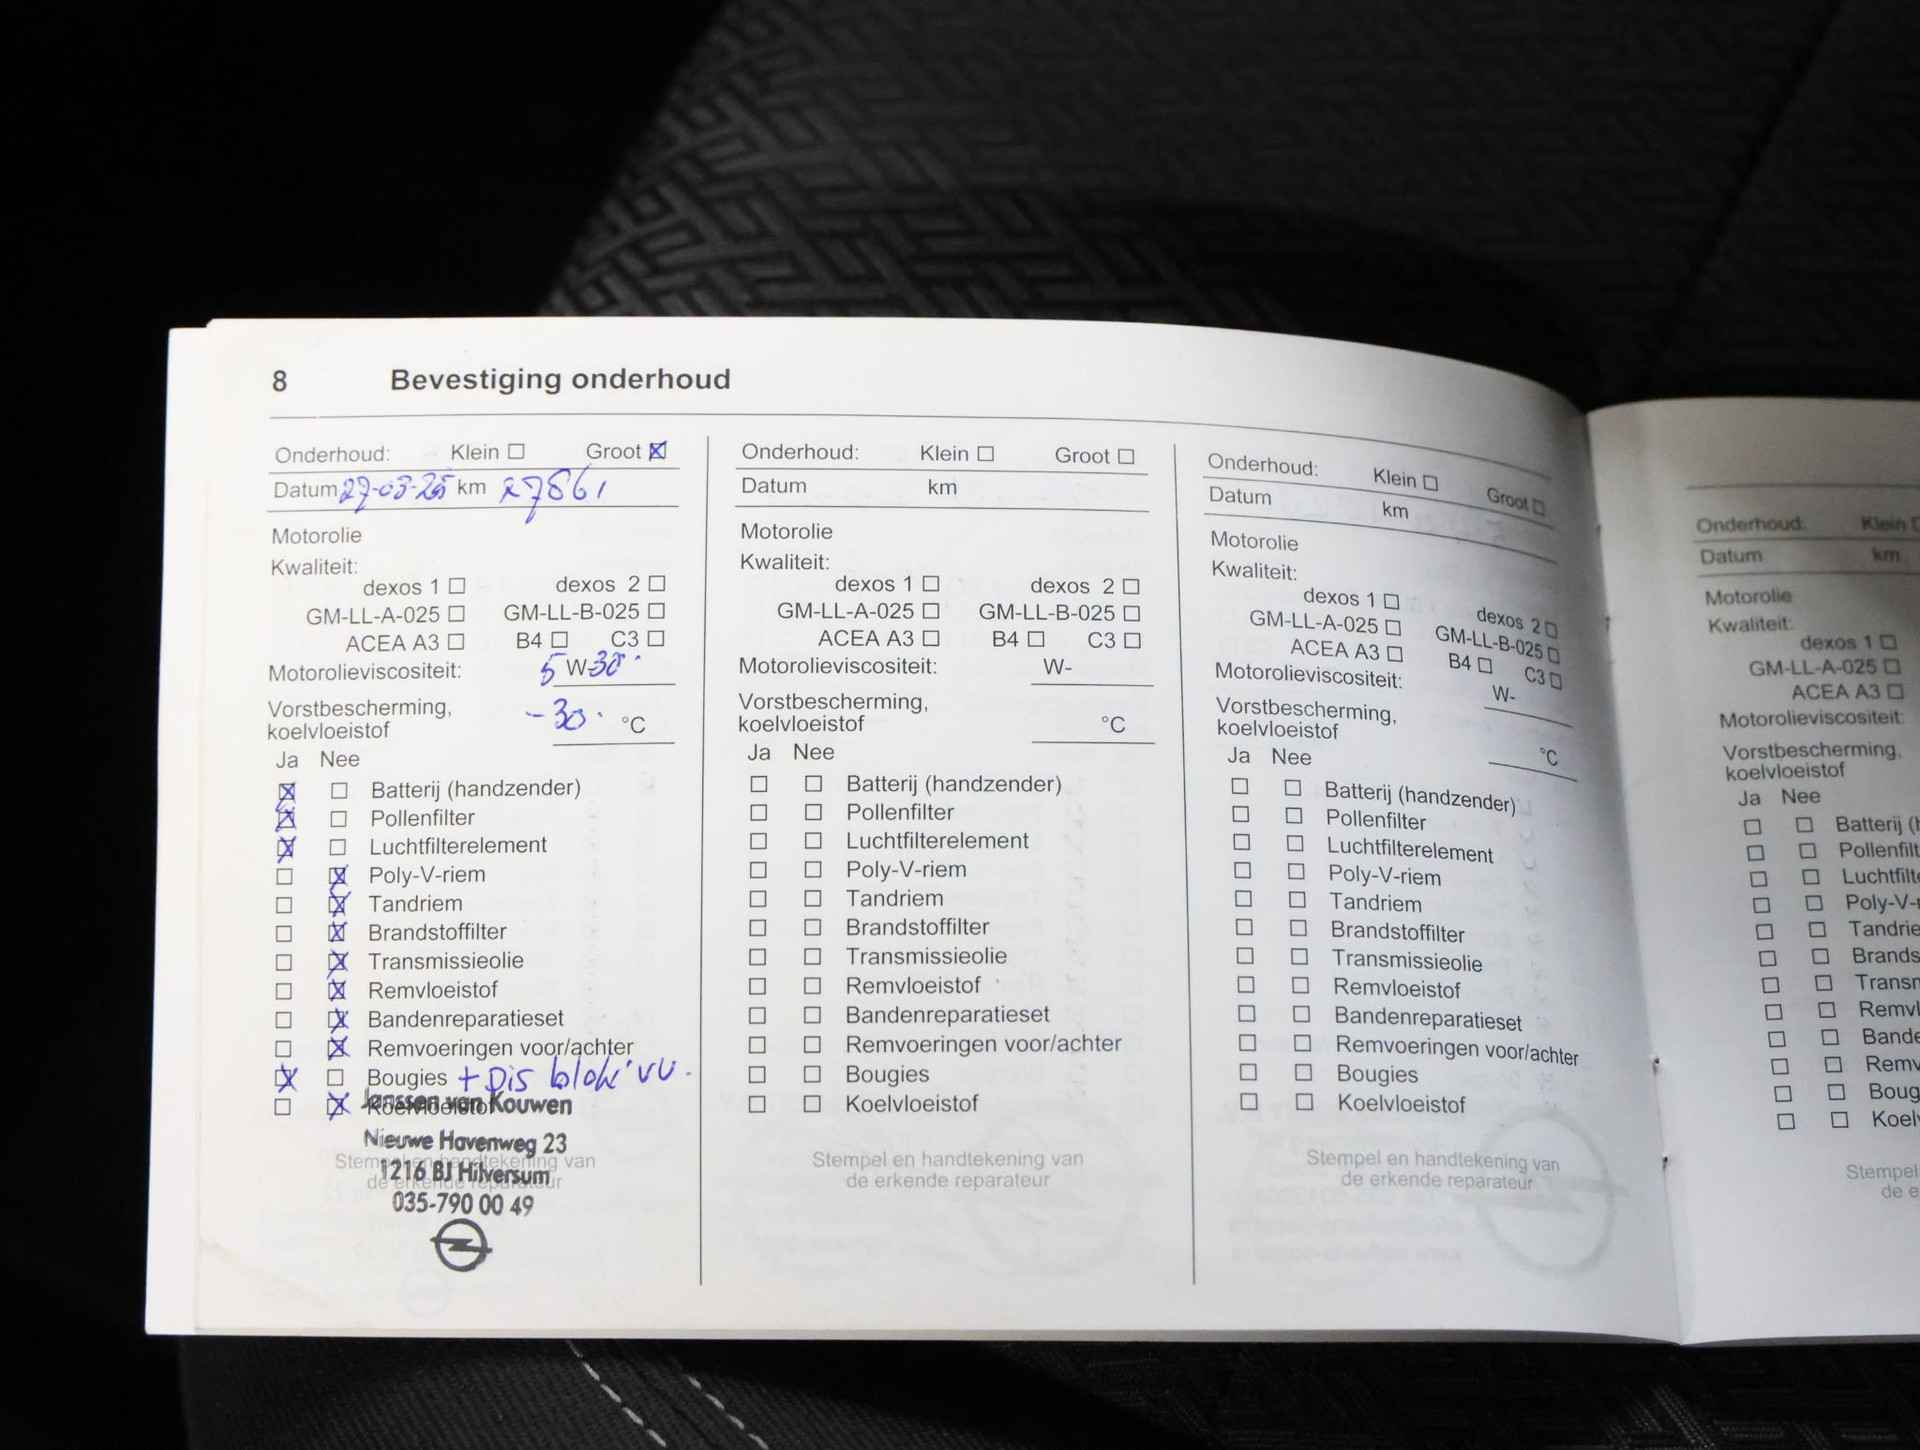 8 Bevestiging onderhoud
Onderhoud: Klein Groot
Datum 27-03-25 km 27861
Motorolie
Kwaliteit:
dexos 1 dexos 2
GM-LL-A-025 GM-LL-B-025
ACEA A3 B4 C3
Motorolieviscositeit: 5 W-30
Vorstbescherming,
koelvloeistof -30 °C
Ja Nee
Batterij (handzender)
Pollenfilter
Luchtfilterelement
Poly-V-riem
Tandriem
Brandstoffilter
Transmissieolie
Remvloeistof
Bandenreparatieset
Remvoeringen voor/achter
Bougies +
Koelvloeistof
Janssen van Kouwen
Nieuwe Havenweg 23
Stempel en handtekening van
1216 BJ Hilversum
de erkende reparateur
035-790 00 49
Onderhoud: Klein Groot
Datum km
Motorolie
Kwaliteit:
dexos 1 dexos 2
GM-LL-A-025 GM-LL-B-025
ACEA A3 B4 C3
Motorolieviscositeit: W-
Vorstbescherming,
koelvloeistof °C
Ja Nee
Batterij (handzender)
Pollenfilter
Luchtfilterelement
Poly-V-riem
Tandriem
Brandstoffilter
Transmissieolie
Remvloeistof
Bandenreparatieset
Remvoeringen voor/achter
Bougies
Koelvloeistof
Stempel en handtekening van
de erkende reparateur
Onderhoud: Klein Groot
Datum km
Motorolie
Kwaliteit:
dexos 1 dexos 2
GM-LL-A-025 GM-LL-B-025
ACEA A3 B4 C3
Motorolieviscositeit: W-
Vorstbescherming,
koelvloeistof °C
Ja Nee
Batterij (handzender)
Pollenfilter
Luchtfilterelement
Poly-V-riem
Tandriem
Brandstoffilter
Transmissieolie
Remvloeistof
Bandenreparatieset
Remvoeringen voor/achter
Bougies
Koelvloeistof
Stempel en handtekening van
de erkende reparateur
Onderhoud: Klein
Datum km
Motorolie
Kwaliteit:
dexos 1
GM-LL-A-025
ACEA A3
Motorolieviscositeit:
Vorstbescherming,
koelvloeistof
Ja Nee
Batterij (h
Pollenfilt
Luchtfilte
Poly-V-r
Tandrie
Brands
Transm
Remvl
Bande
Remv
Boug
Koelv
Stempel
de e